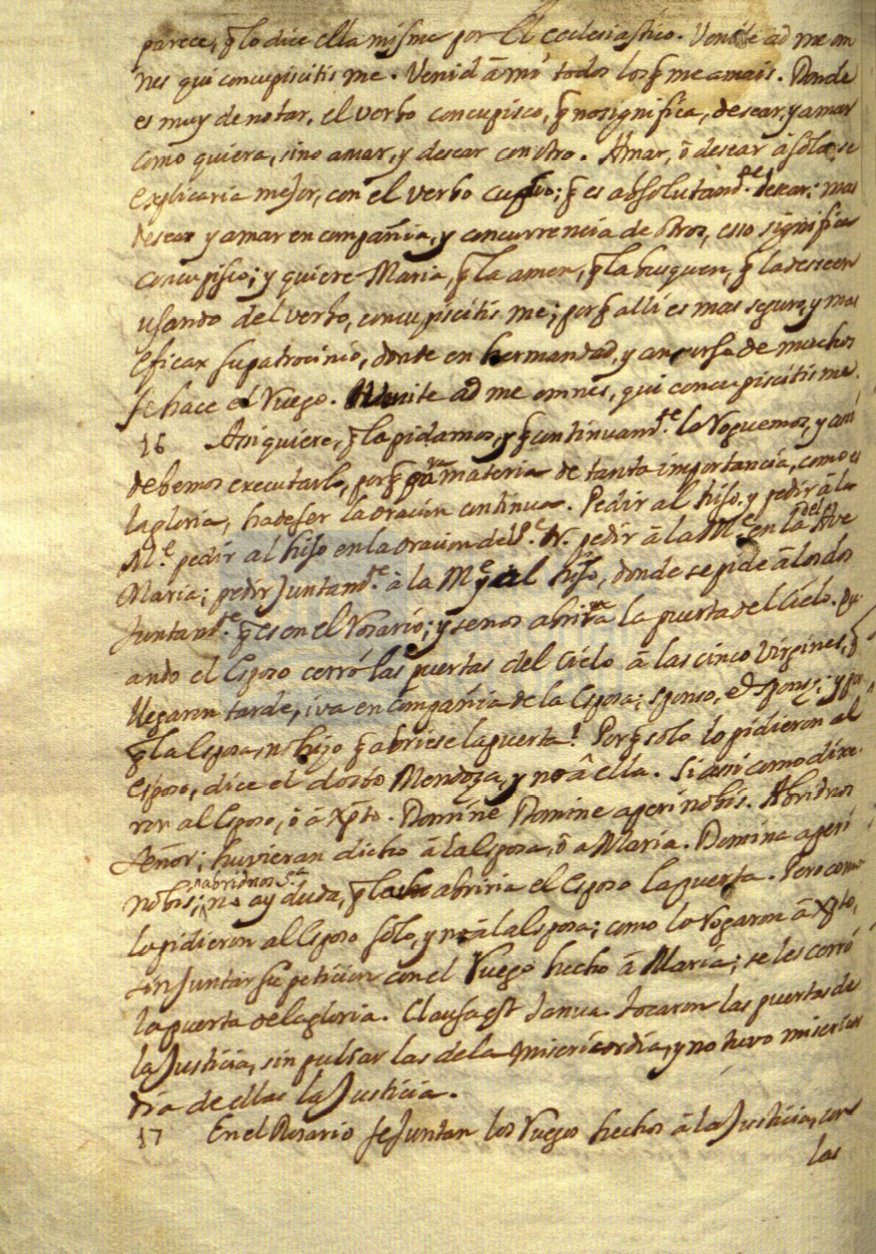 parece, q̃ lo dice ella misma por el ecclesiastico. Venite ad me om
nes qui concupiscitis me. Venid â mi todos los q̃ me amais. Donde
es muy de notar, el verbo concupisco, q̃ no significa, desear, y amar
como quiera, sino amar, y desear con otro. Amar, ô desear â solas, se
explicaria mejor, con el verbo cupio; q̃ es absolutamte. desear: mas
desear y amar en compañia, y concurrencia de otros, esso significa
concupisco; y quiere Maria, q̃ la amen, q̃ la busquen, q̃ la desseen
usando del verbo, concupiscitis me; porq̃ alli es mas seguro, y mas
eficax su patrocinio, donde en hermandad, y concurso de muchos
se hace el ruego. Venite ad me omnes, qui concupiscitis me.
16 Assi quiere, q̃ la pidamos, y q̃ continuamte. la roguemos, y assi
debemos executarlo, porq̃ pa. materia de tanta importancia, como es
la gloria, ha de ser la oracion continua. Pedir al hijo, y pedir â la
Me. pedir al hijo en la oracion del Pe. N. pedir â la Me. en la del Ave
Maria; pedir juntamte. â la Me. y al hijo, donde se pide â los dos
juntamte. q̃ es en el Rosario; y se nos abrirá la puerta del Cielo. Qu
ando el Esposo cerró las puertas del Cielo â las cinco Virgines, q̃
llegaron tarde, iva en compañia de la Esposa; sponso, et sponsę; y por
q̃ la Esposa, no hizo q̃ abriese la puerta? Porq̃ solo lo pidieron al
esposo, dice el docto Mendoza, y no â ella. Si assi como dixe
ron al Esposo, ô â Xp̃to. Domine Domine aperi nobis. Abridnos
Señor; huvieran dicho â la Esposa, ô a Maria. Domina aperi
nobis; abridnos Sa. no ay duda, q̃ abriria el Esposo la puerta. Pero como
lo pidieron al Esposo solo, y no â la Esposa; como lo rogaron â Xp̃to,
sin juntar su peticion con el ruego hecho â Maria; se les cerró
la puerta de la gloria. Clausa est Janua. Tocaron las puertas de
la Justicia, sin pulsar las de la misericordia, y no tuvo misericor
dia de ellas la Justicia.
17 En el Rosario se juntan los ruegos hechos â la Justicia, con
las